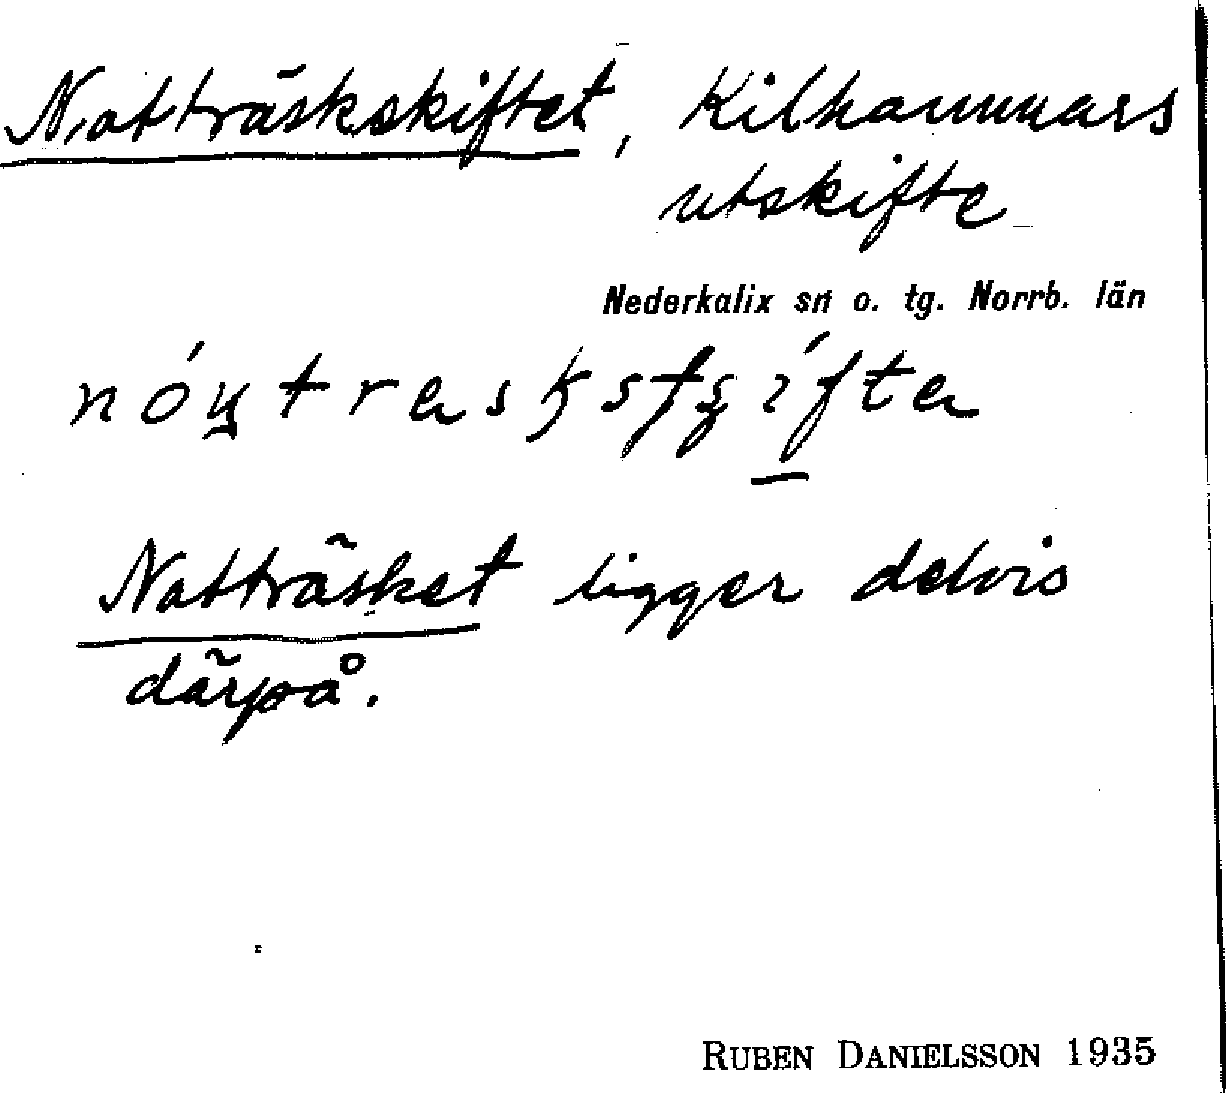 Natträskskiftet, Kilhammars
utskifte
Nederkalix sn o. tg. Norrb. län
Natträsket ligger delvis
därpå.
RUBEN DANIELSSON 1935